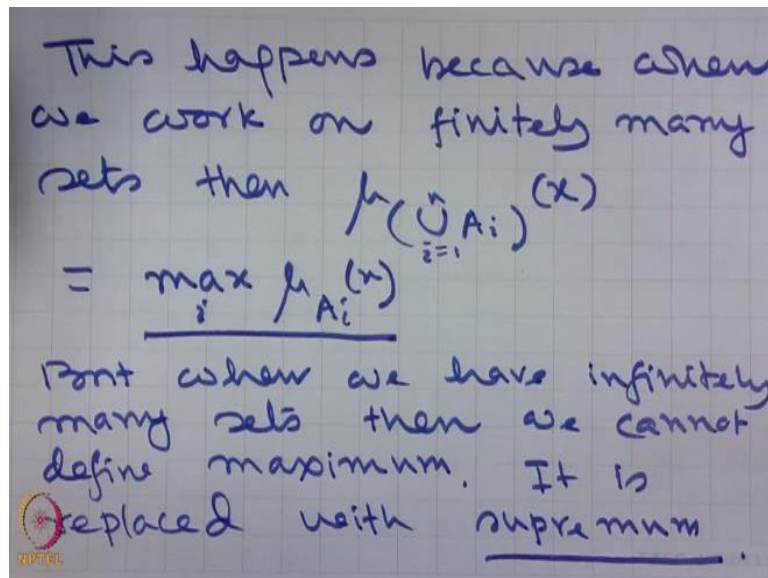 This happens because when
we work on finitely many
sets then μ(⋃ᵢ₌₁ⁿ Aᵢ)(x)
= max_i μ_Aᵢ(x)
But when we have infinitely
many sets then we cannot
define maximum. It is
replaced with supremum.
NPTEL